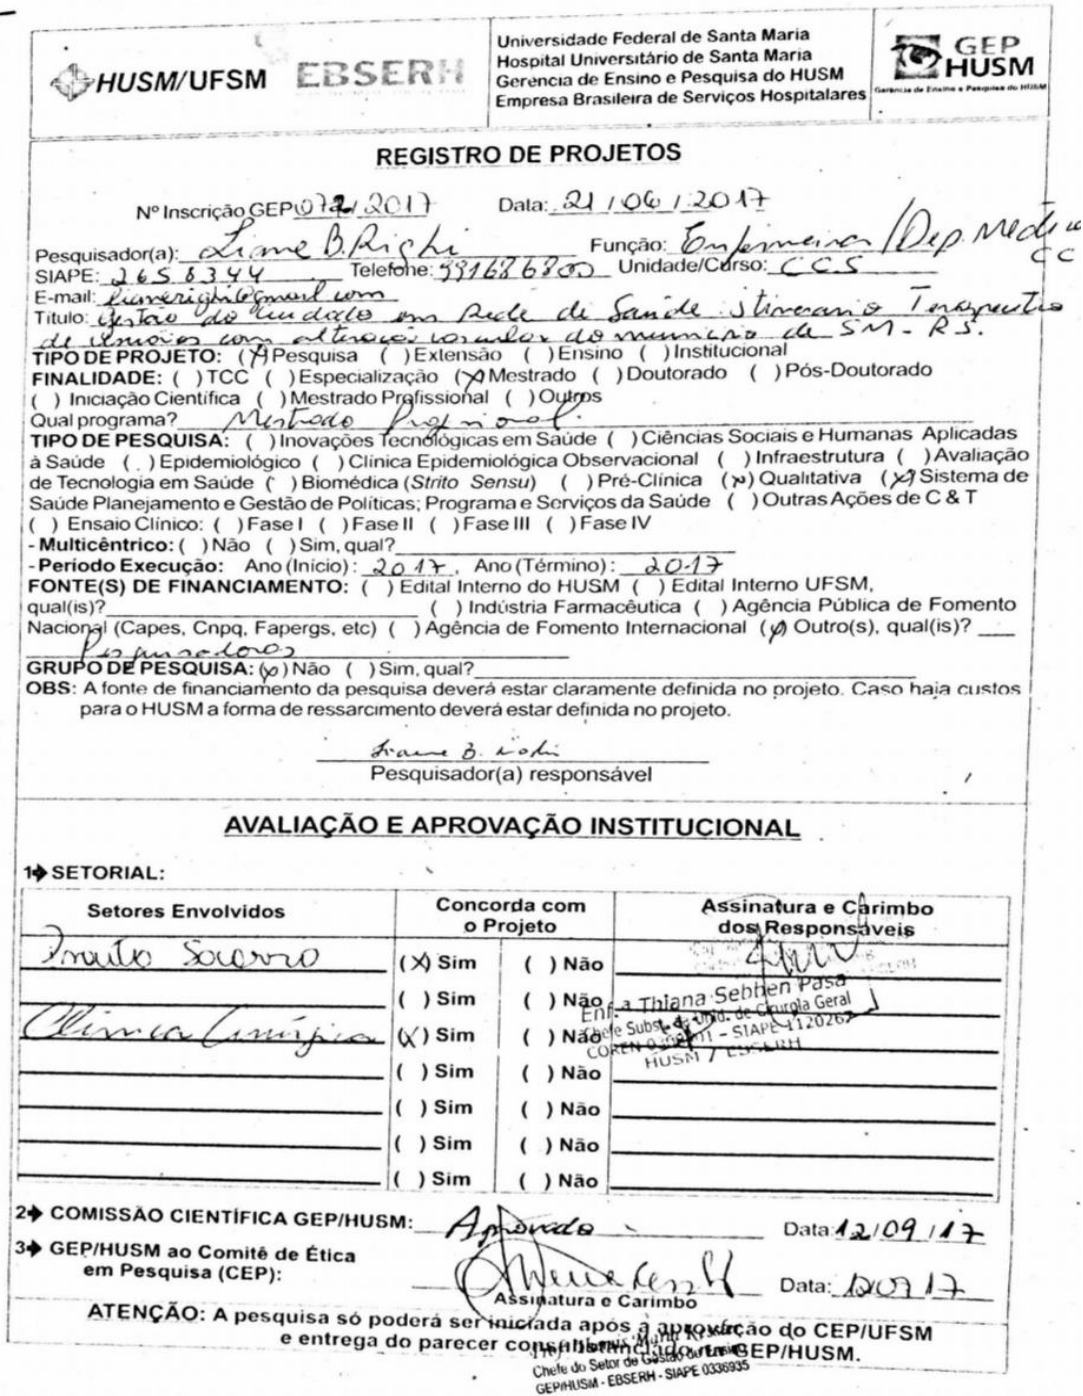 HUSM/UFSM
EBSERH
Universidade Federal de Santa Maria
Hospital Universitário de Santa Maria
Gerencia de Ensino e Pesquisa do HUSM
Empresa Brasileira de Serviços Hospitalares
GEP
HUSM
Gerência de Ensino e Pesquisa do HUSM
REGISTRO DE PROJETOS
Nº Inscrição GEP 072/2017 Data: 21/06/2017
Pesquisador(a): Liane B. Righi Função: Enfermeira / Dep. Medicina
SIAPE: 2658344 Telefone: 991686800 Unidade/Curso: CCS CC
E-mail: lianerighi@gmail.com
Título: Gestão do Cuidado em Rede de Saúde Itinerario Terapeutico
de com do municipio de SM - RS.
TIPO DE PROJETO: (X) Pesquisa ( ) Extensão ( ) Ensino ( ) Institucional
FINALIDADE: ( ) TCC ( ) Especialização (X) Mestrado ( ) Doutorado ( ) Pós-Doutorado
( ) Iniciação Científica ( ) Mestrado Profissional ( ) Outros
Qual programa? Mestrado Profissional.
TIPO DE PESQUISA: ( ) Inovações Tecnológicas em Saúde ( ) Ciências Sociais e Humanas Aplicadas
à Saúde ( ) Epidemiológico ( ) Clínica Epidemiológica Observacional ( ) Infraestrutura ( ) Avaliação
de Tecnologia em Saúde ( ) Biomédica (Strito Sensu) ( ) Pré-Clínica (x) Qualitativa (x) Sistema de
Saúde Planejamento e Gestão de Políticas; Programa e Serviços da Saúde ( ) Outras Ações de C & T
( ) Ensaio Clínico: ( ) Fase I ( ) Fase II ( ) Fase III ( ) Fase IV
- Multicêntrico: ( ) Não ( ) Sim, qual?
- Período Execução: Ano (Início): 2017, Ano (Término): 2017
FONTE(S) DE FINANCIAMENTO: ( ) Edital Interno do HUSM ( ) Edital Interno UFSM,
qual(is)? ( ) Indústria Farmacêutica ( ) Agência Pública de Fomento
Nacional (Capes, Cnpq, Fapergs, etc) ( ) Agência de Fomento Internacional (x) Outro(s), qual(is)?
Pesquisadores
GRUPO DE PESQUISA: (x) Não ( ) Sim, qual?
OBS: A fonte de financiamento da pesquisa deverá estar claramente definida no projeto. Caso haja custos
para o HUSM a forma de ressarcimento deverá estar definida no projeto.
Liane B. Righi
Pesquisador(a) responsável
AVALIAÇÃO E APROVAÇÃO INSTITUCIONAL
1 SETORIAL:
Setores Envolvidos Concorda com o Projeto Assinatura e Carimbo dos Responsáveis
Pronto Socorro (X) Sim ( ) Não
( ) Sim ( ) Não
Clínica Cirúrgica (X) Sim ( ) Não
Enf.a Thiana Sebben Pasa
Chefe Subst. da Unid. de Cirurgia Geral
COREN - SIAPE 1120262
HUSM / EBSERH
( ) Sim ( ) Não
( ) Sim ( ) Não
( ) Sim ( ) Não
( ) Sim ( ) Não
2 COMISSÃO CIENTÍFICA GEP/HUSM: Aprovado Data: 12/09/17
3 GEP/HUSM ao Comitê de Ética
em Pesquisa (CEP): Data: 120917
Assinatura e Carimbo
ATENÇÃO: A pesquisa só poderá ser iniciada após a aprovação do CEP/UFSM
e entrega do parecer consubstanciado na GEP/HUSM.
Chefe do Setor de Gestão do Ensino
GEP/HUSM - EBSERH - SIAPE 0336935